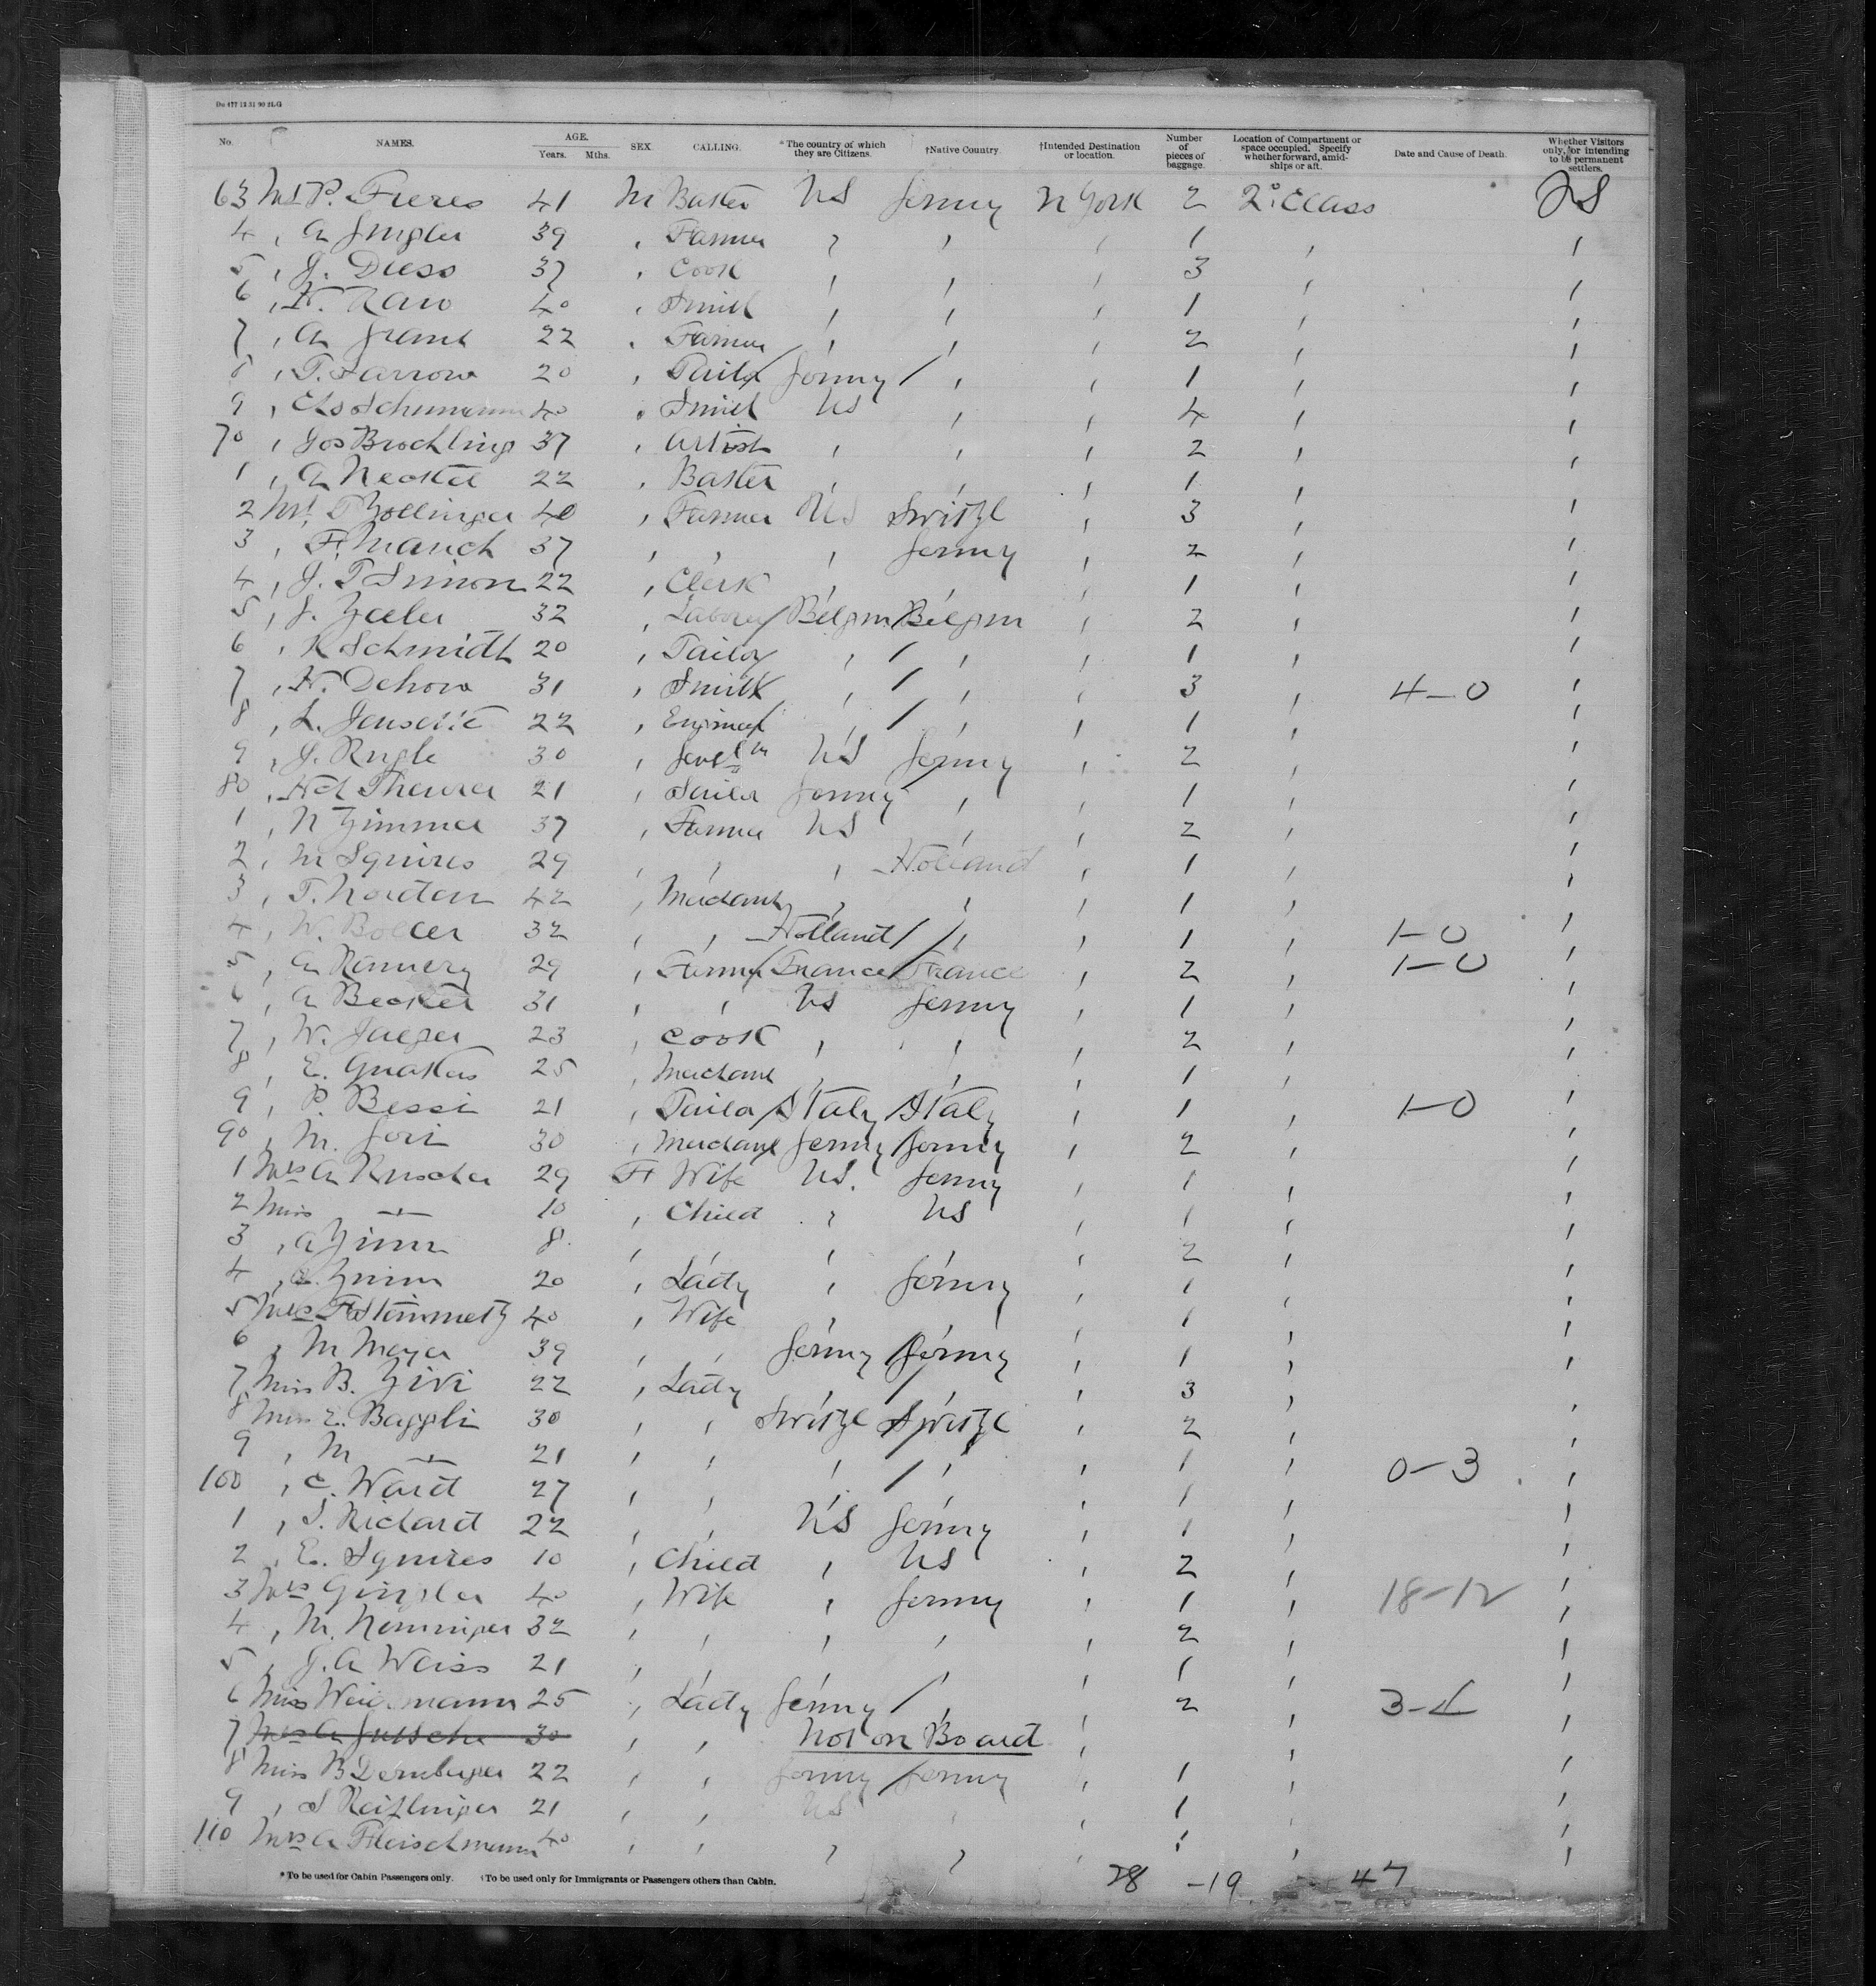 No. NAMES. AGE. Years. Mths. SEX. CALLING. *The country of which they are Citizens. †Native Country. †Intended Destination or location. Number of pieces of baggage. Location of Compartment or space occupied. Specify whether forward, amidships or aft. Date and Cause of Death. Whether Visitors only, or intending to be permanent settlers.
63 P. Freres 41 M US Germy N York 2 2° Class US
4 , 39 , Farmer , , , 1 , ,
5 , J. Diess 37 , Cook , , , 3 , ,
6 , 40 , Smith , , , 1 , ,
7 , A 22 , Farmer , , , 2 , ,
8 , T. Farrow 20 , Tailor Germy / , , 1 , ,
9 , Chs Schumann 40 , Smith US , , 4 , ,
70 , Jos Brochling 37 , Artist , , , 2 , ,
1 , A 22 , , , , 1 , ,
2 Mr. Zollinger 40 , Farmer US Switzl , 3 , ,
3 , F. Mauch 37 , , , Germy , 2 , ,
4 , J. T Simon 22 , Clerk , , , 1 , ,
5 , J. 32 , Laborer / Belgm / Belgm , 2 , ,
6 , K Schmidt 20 , Tailor , / , , 1 , ,
7 , N. Dehow 31 , Smith , / , , 3 , 4-0 ,
8 , L. 22 , Engineer , / , , 1 , ,
9 , J. Rugle 30 , US Germy , 2 , ,
80 , 21 , Germy , , 1 , ,
1 , N Zimmer 37 , Farmer US , , 2 , ,
2 , M Squires 29 , , , Holland , 1 , ,
3 , T. Norden 42 , Merchant , , , 1 , ,
4 , W. Boller 32 , , Holland / / , , 1 , 1-0 ,
5 , A Rannery 29 , France / France , 2 , 1-0 ,
6 , A Becker 31 , , US Germy , 1 , ,
7 , W. Jaeger 23 , Cook , , , 2 , ,
8 , E. 25 , Merchant , , , 1 , ,
9 , P. Bessi 21 , Tailor / Italy / Italy , 1 , 1-0 ,
90 , M. 30 , Merchant Germy / Germy , 2 , ,
1 Mrs A Kuscher 29 F Wife US. Germy , 1 , ,
2 Miss — 10 , Child , US , 1 , ,
3 , A Zimm 8 , , , , , 2 , ,
4 , Zimm 20 , Lady , Germy , 1 , ,
5 Mrs F Steinmetz 40 , Wife , , , 1 , ,
6 , M Meyer 39 , , Germy / Germy , 1 , ,
7 Miss B. Zivi 22 , Lady , / , , 3 , ,
8 Miss E. Baggli 30 , , Switzl / Switzl , 2 , ,
9 , M — 21 , , , / , , 1 , 0-3 ,
100 , C. Ward 27 , , , , , 1 , ,
1 , S. Richard 22 , , US Germy , 1 , ,
2 , E. Squires 10 , Child , US , 2 , ,
3 Mrs Gingler 40 , Wife , Germy , 1 , 18-12 ,
4 , M. Nenninger 32 , , , , , 2 , ,
5 , J. A Weiss 21 , , , , , 1 , ,
6 Miss Weidemann 25 , Lady Germy / , , 2 , 3-4 ,
7 Mrs A 30 , , Not on Board , , ,
8 Miss B Dernburger 22 , , Germy / Germy , 1 , ,
9 , S Reitlinger 21 , , US , , 1 , ,
110 Mrs A Fleischmann 40 , , , , , 1 , ,
*To be used for Cabin Passengers only. †To be used only for Immigrants or Passengers others than Cabin. 28 -19 47